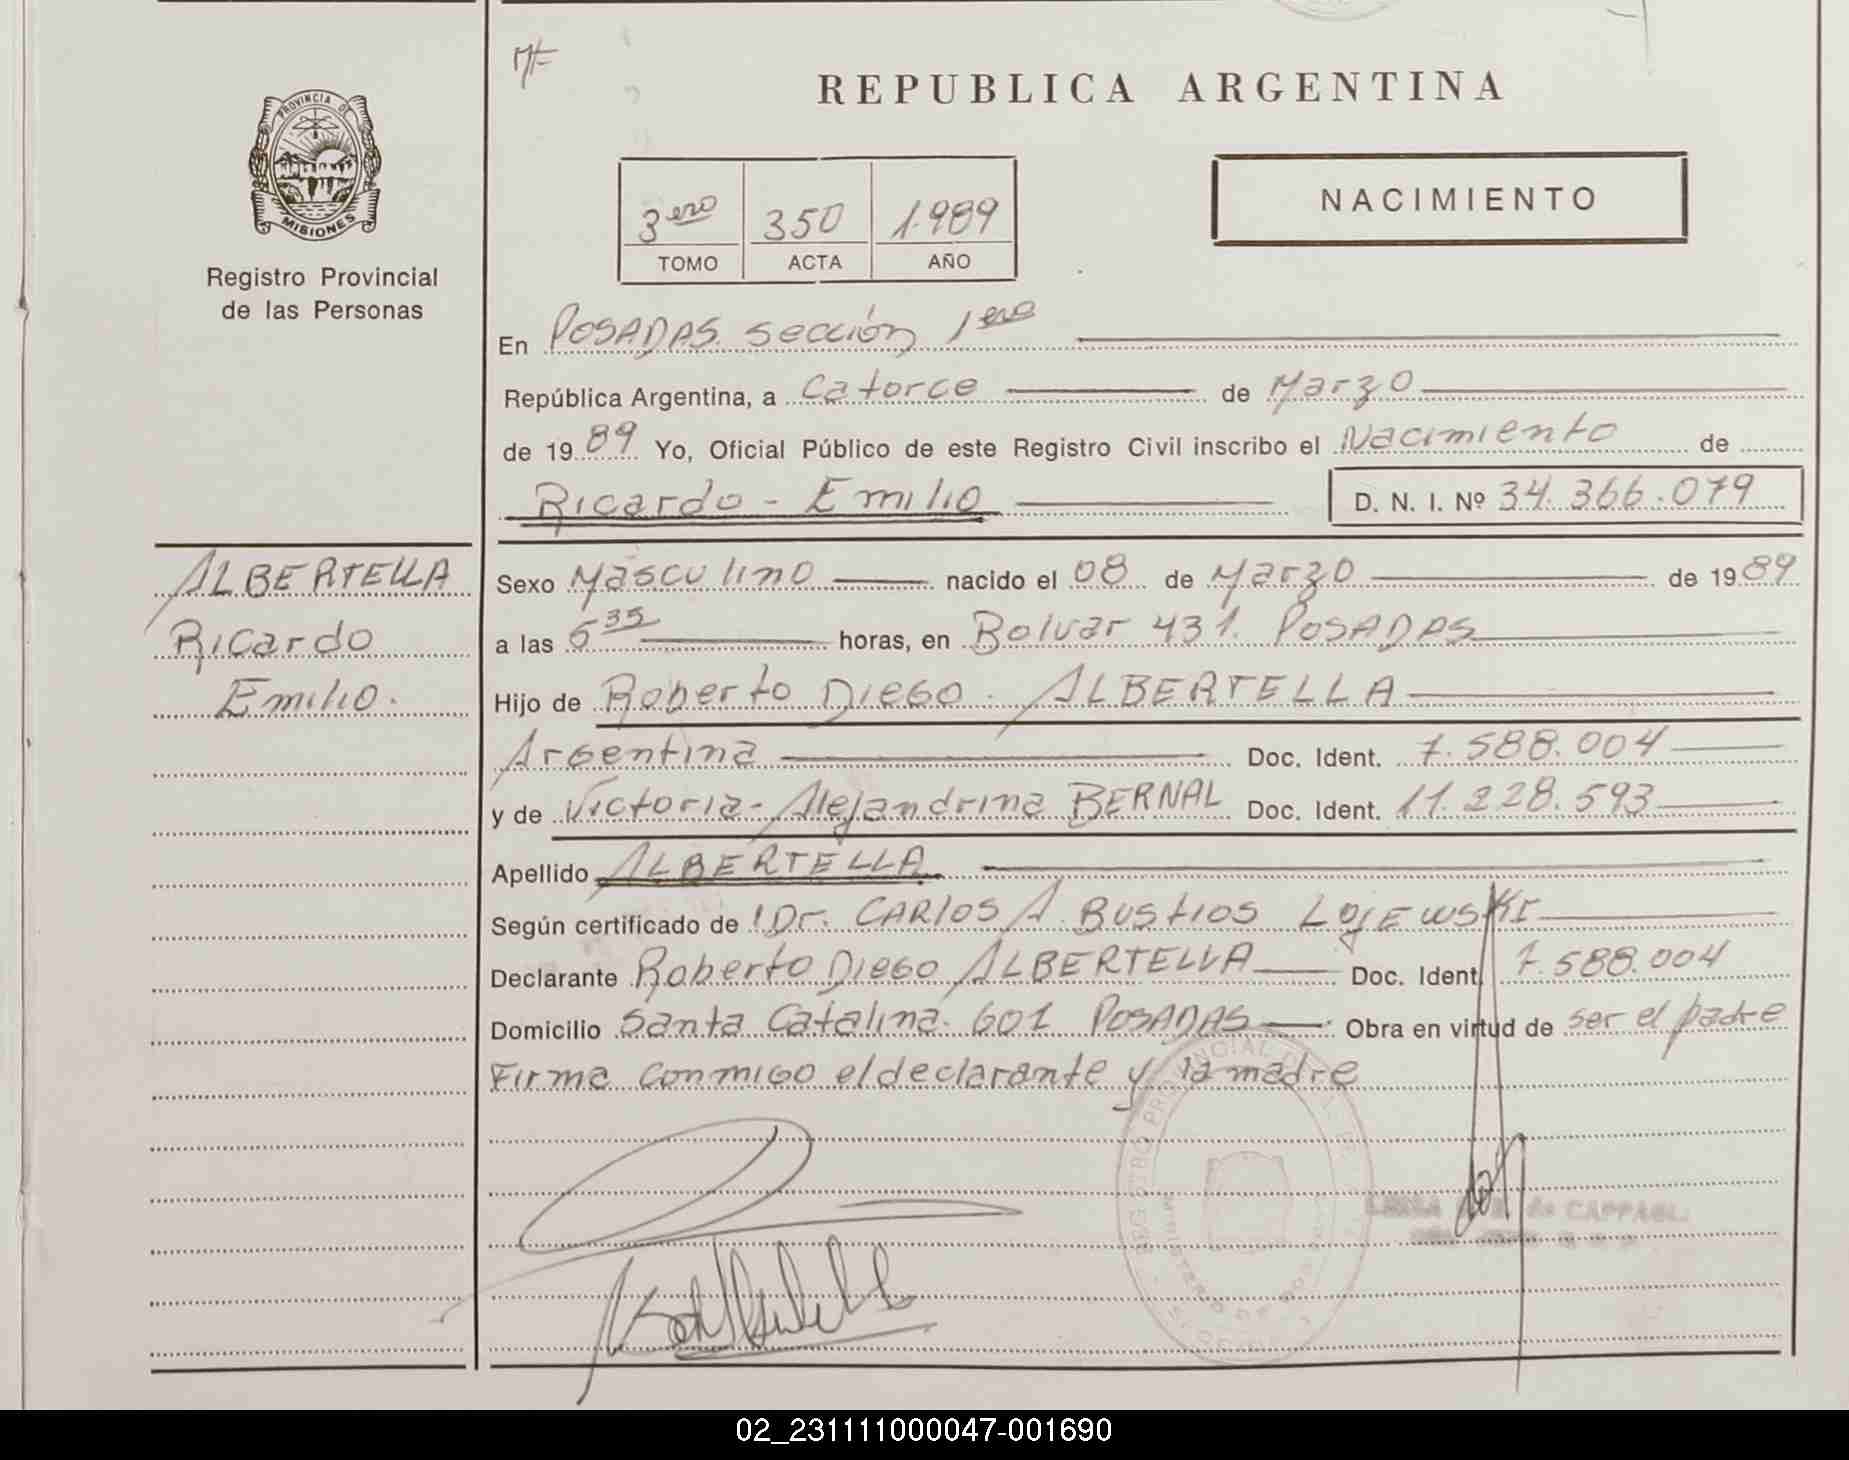 MF
REPUBLICA ARGENTINA
PROVINCIA DE
MISIONES
Registro Provincial
de las Personas
3ero 350 1.989
TOMO ACTA AÑO
NACIMIENTO
En POSADAS. sección 1era
República Argentina, a Catorce de Marzo
de 1989 Yo, Oficial Público de este Registro Civil inscribo el Nacimiento de
Ricardo - Emilio D. N. I. Nº 34.366.079
ALBERTELLA
Ricardo
Emilio.
Sexo Masculino nacido el 08 de Marzo de 1989
a las 5 35 horas, en Bolvar 431. POSADAS
Hijo de Roberto Diego. ALBERTELLA
Argentina Doc. Ident. 7.588.004
y de Victoria-Alejandrina BERNAL Doc. Ident. 11.228.593
Apellido ALBERTELLA
Según certificado de Dr. CARLOS A. BUSTIOS LOJEWSKI
Declarante Roberto Diego ALBERTELLA Doc. Ident. 7.588.004
Domicilio Santa Catalina. 601 POSADAS Obra en virtud de ser el padre
Firma conmigo el declarante y la madre
de CAPPAGL
02_231111000047-001690